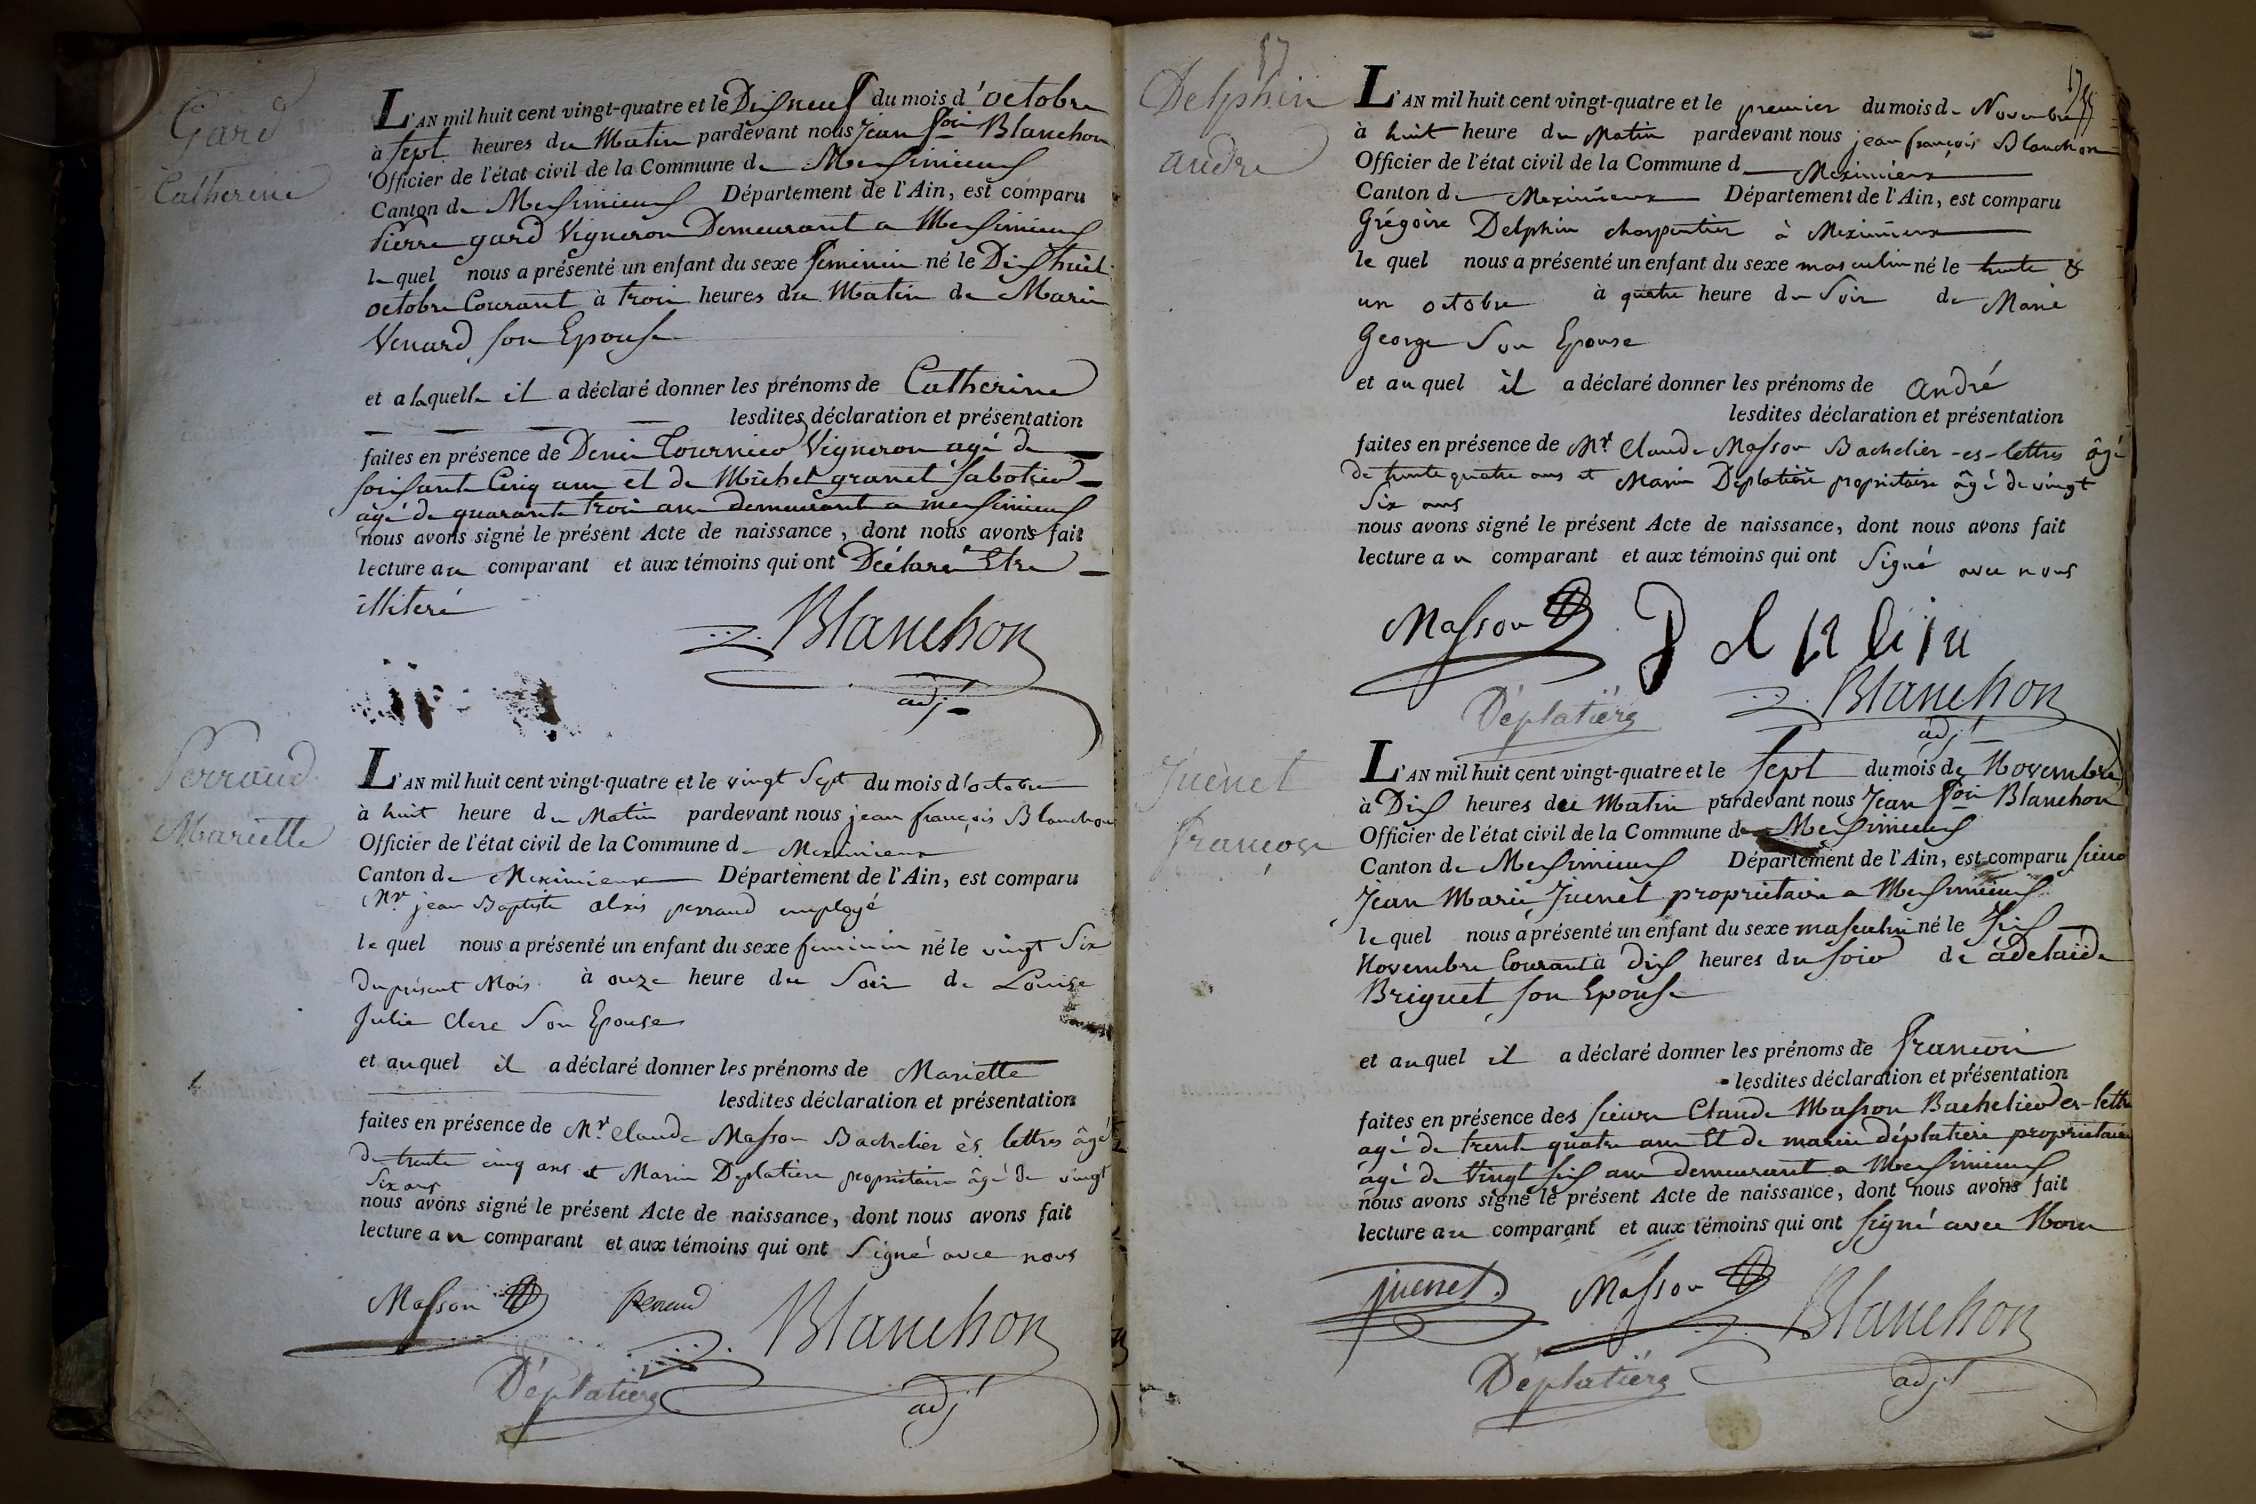 Gard
Catherine
L'AN mil huit cent vingt-quatre et le Dixneuf du mois d'octobre
à sept heures du Matin pardevant nous Jean fois Blanchon
Officier de l'état civil de la Commune de Meximieux
Canton de Meximieux Département de l'Ain, est comparu
Pierre gard Vigneron Demeurant a Meximieux
lequel nous a présenté un enfant du sexe feminin né le Dixhuit
octobre Courant à trois heures du Matin de Marie
Venard son Epouse
et a laquelle il a déclaré donner les prénoms de Catherine
lesdites déclaration et présentation
faites en présence de Denis Tournier Vigneron agé de
soixante Cinq ans et de Michel granet Sabotier
agé de quarante trois ans demeurant a meximieux
nous avons signé le présent Acte de naissance, dont nous avons fait
lecture au comparant et aux témoins qui ont Déclaré Etre
illiteré
Blanchon
adj
Perraud
Mariette
L'AN mil huit cent vingt-quatre et le vingt Sept du mois d'octobre
à huit heure du Matin pardevant nous jean françois Blanchon
Officier de l'état civil de la Commune de Meximieux
Canton de Meximieux Département de l'Ain, est comparu
Mr jean Baptiste alexis perraud employé
lequel nous a présenté un enfant du sexe feminin né le vingt Six
du présent Mois à onze heure du Soir de Louise
Julie Clerc Son Epouse
et auquel il a déclaré donner les prénoms de Mariette
lesdites déclaration et présentation
faites en présence de Mr. Claude Masson Bachelier ès lettres âgé
de trente cinq ans et Marin Deplatiere propriétaire âgé de vingt
Six ans
nous avons signé le présent Acte de naissance, dont nous avons fait
lecture au comparant et aux témoins qui ont Signé avec nous
Masson perraud Blanchon
Déplatière adjt
17
17
Delphin
andré
L'AN mil huit cent vingt-quatre et le premier du mois de Novembre
à huit heure du Matin pardevant nous jean françois Blanchon
Officier de l'état civil de la Commune d Meximieux
Canton de Meximieux Département de l'Ain, est comparu
Grégoire Delphin charpentier à Meximieux
lequel nous a présenté un enfant du sexe masculin né le trente &
un octobre à quatre heure du Soir de Marie
George Son Epouse
et auquel il a déclaré donner les prénoms de andré
lesdites déclaration et présentation
faites en présence de Mr. Claude Masson Bachelier-es-lettres âgé
de trente quatre ans et Marin Déplatière propriétaire âgé de vingt
Six ans
nous avons signé le présent Acte de naissance, dont nous avons fait
lecture au comparant et aux témoins qui ont Signé avec nous
Masson
Déplatière Blanchon
adjt
Juenet
françois
L'AN mil huit cent vingt-quatre et le sept du mois de Novembre
à Dix heures du Matin pardevant nous Jean fois Blanchon
Officier de l'état civil de la Commune de Meximieux
Canton de Meximieux Département de l'Ain, est comparu sieur
Jean Marie Juenet propriétaire a Meximieux
lequel nous a présenté un enfant du sexe masculin né le Six
Novembre Courant à Dix heures du soir de adelaïde
Briguet son Epouse
et auquel il a déclaré donner les prénoms de françois
lesdites déclaration et présentation
faites en présence des sieurs Claude Masson Bachelier es-lettres
agé de trente quatre ans Et de marin déplatiere propriétaire
âgé de vingt six ans demeurant a Meximieux
nous avons signé le présent Acte de naissance, dont nous avons fait
lecture au comparant et aux témoins qui ont signé avec Nous
juenet Masson Blanchon
Déplatière adjt